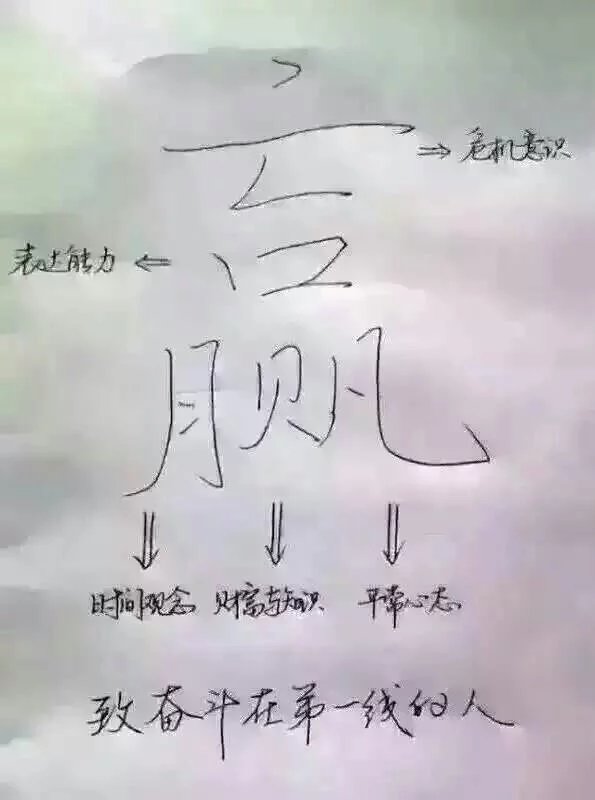 赢
⇒ 危机意识
表达能力 ⇐
时间观念 财富与知识 平常心态
致奋斗在第一线的人